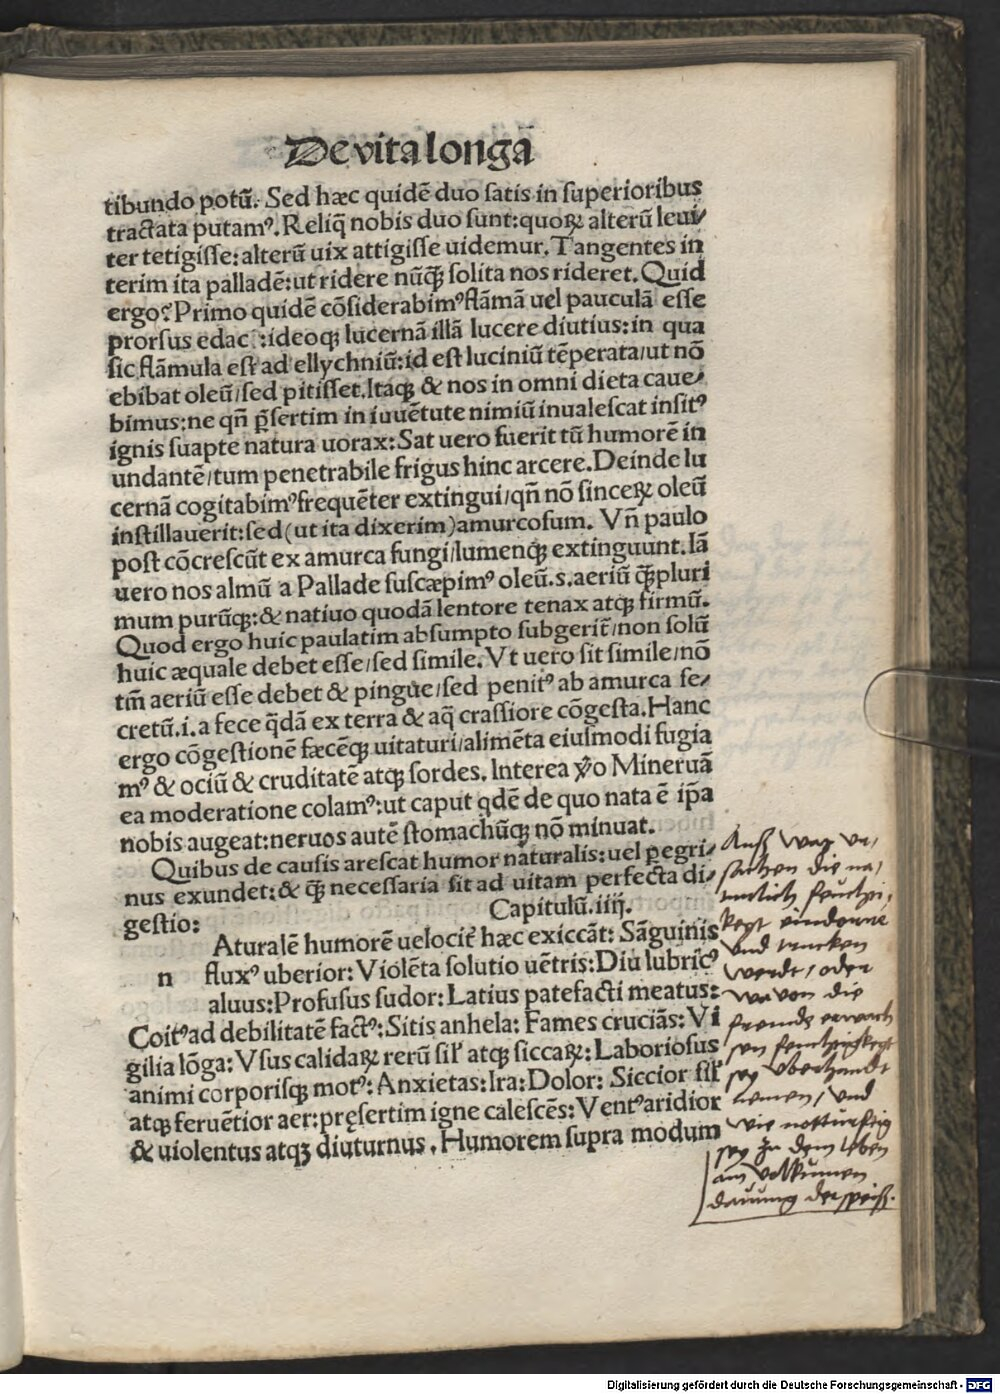 De vita longa
tibundo potū. Sed hæc quidē duo satis in superioribus
tractata putamꝰ. Reliq̄ nobis duo sunt: quoꝝ alterū leui⸗
ter tetigisse: alterū uix attigisse uidemur. Tangentes in
terim ita palladē: ut ridere nūꝙ̄ solita nos rideret. Quid
ergo? Primo quidē cōsiderabimꝰ flāmā uel pauculā esse
prorsus edac : ideoqꝫ lucernā illā lucere diutius: in qua
sic flāmula est ad ellychniū: id est luciniū tēperata/ut nō
ebibat oleū/sed pitisset. Itaqꝫ & nos in omni dieta caue⸗
bimus: ne qn̄ p̄sertim in iuuētute nimiū inualescat insitꝰ
ignis suapte natura uorax: Sat uero fuerit tū humorē in
undantē/tum penetrabile frigus hinc arcere. Deinde lu
cernā cogitabimꝰ frequēter extingui/qn̄ nō sinceꝝ oleū
instillauerit: sed (ut ita dixerim) amurcosum. Vn̄ paulo
post cōcrescūt ex amurca fungi/lumenqꝫ extinguunt. Iā
uero nos almū a Pallade suscæpimꝰ oleū. s. aeriū ꝙ̄ pluri
mum purūqꝫ: & natiuo quodā lentore tenax atqꝫ firmū.
Quod ergo huic paulatim absumpto subgerit̄/non solū
huic æquale debet esse/sed simile. Vt uero sit simile/nō
tm̄ aeriū esse debet & pingue/sed penitꝰ ab amurca se⸗
cretū. i. a fece q̄dā ex terra & aq̄ crassiore cōgesta. Hanc
ergo cōgestionē fæcēqꝫ uitaturi/alimēta eiusmodi fugia
mꝰ & ociū & cruditatē atqꝫ sordes. Interea ꝟo Mineruā
ea moderatione colamꝰ: ut caput qdē de quo nata ē ip̄a
nobis augeat: neruos autē stomachūqꝫ nō minuat.
Quibus de causis arescat humor naturalis: uel ꝑegri⸗
nus exundet: & ꝙ̄ necessaria sit ad uitam perfecta di⸗
gestio: Capitulū. iiij.
n Aturalē humorē uelocit̄ hæc exiccāt: Sāguinis
fluxꝰ uberior: Violēta solutio uētris: Diu lubricꝰ
aluus: Profusus sudor: Latius patefacti meatus:
Coitꝰ ad debilitatē factꝰ: Sitis anhela: Fames cruciās: Vi
gilia lōga: Vsus calidaꝝ rerū sil̄ atqꝫ siccaꝝ: Laboriosus
animi corporisqꝫ motꝰ: Anxietas: Ira: Dolor: Siccior sil̄
atqꝫ feruētior aer: pręsertim igne calescēs: Ventꝰ aridior
& uiolentus atqꝫ diuturnus. Humorem supra modum
Auß was vr⸗
sachen die na⸗
turlich feuchti⸗
keyt eindorre
vnd trucken
werde/ oder
wa von die
frembde erwach
sen feuchtigkeyt
sey vberhandt
nemen/ vnd
wie notturftig
sey zu dem leben
ain volkumen
dauung der speiß.
Digitalisierung gefördert durch die Deutsche Forschungsgemeinschaft - DFG